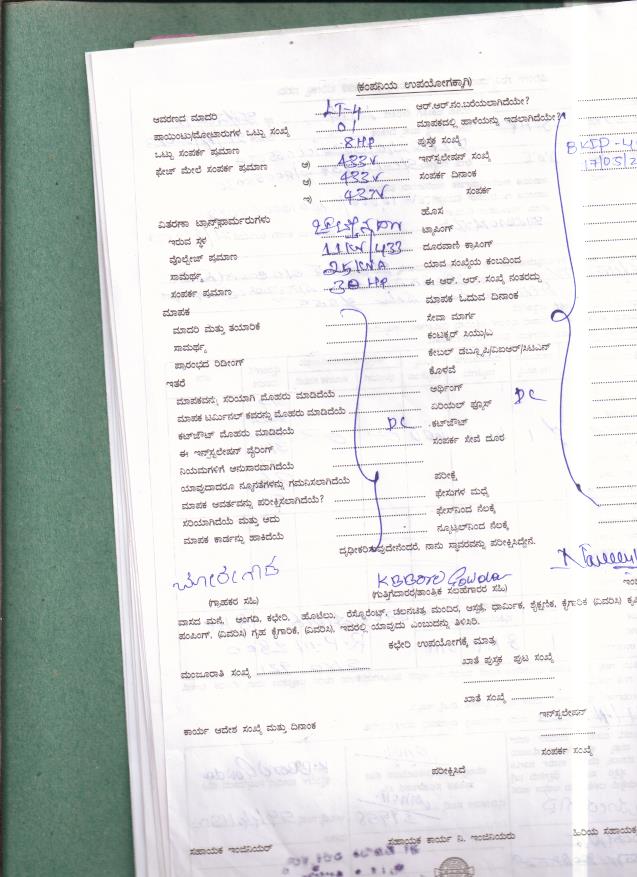 (ಕಂಪನಿಯ ಉಪಯೋಗಕ್ಕಾಗಿ)
ಆವರಣದ ಮಾದರಿ LT-4 ಆರ್.ಆರ್.ನಂ.ಬರೆಯಲಾಗಿದೆಯೇ?
ಪಾಯಿಂಟು/ಮೋಟಾರುಗಳ ಒಟ್ಟು ಸಂಖ್ಯೆ 01 ಮಾಪಕದಲ್ಲಿ ಹಾಳೆಯನ್ನು ಇಡಲಾಗಿದೆಯೇ?
ಒಟ್ಟು ಸಂಪರ್ಕ ಪ್ರಮಾಣ 8HP ಪುಸ್ತಕ ಸಂಖ್ಯೆ
ಫೇಜ್ ಮೇಲೆ ಸಂಪರ್ಕ ಪ್ರಮಾಣ ಅ) 433V ಇನ್‌ಸ್ಟಲೇಷನ್ ಸಂಖ್ಯೆ
ಆ) 433V ಸಂಪರ್ಕ ದಿನಾಂಕ
ಇ) ಸಂಪರ್ಕ
ಹೊಸ
ವಿತರಣಾ ಟ್ರಾನ್ಸ್‌ಫಾರ್ಮರುಗಳು ಟ್ಯಾಪಿಂಗ್
ಇರುವ ಸ್ಥಳ ದೂರವಾಣಿ ಕ್ರಾಸಿಂಗ್
ವೊಲ್ಟೇಜ್ ಪ್ರಮಾಣ 11KV/433 ಯಾವ ಸಂಖ್ಯೆಯ ಕಂಬದಿಂದ
ಸಾಮರ್ಥ್ಯ 25KVA ಈ ಆರ್. ಆರ್. ಸಂಖ್ಯೆ ನಂತರದ್ದು
ಸಂಪರ್ಕ ಪ್ರಮಾಣ 30HP ಮಾಪಕ ಓದುವ ದಿನಾಂಕ
ಮಾಪಕ ಸೇವಾ ಮಾರ್ಗ
ಮಾದರಿ ಮತ್ತು ತಯಾರಿಕೆ ಕಂಟಕ್ಟರ್ ಸಿಯು/ಎ
ಸಾಮರ್ಥ್ಯ ಕೇಬಲ್ ಡಬ್ಲ್ಯೂಪಿ/ವಿಐಆರ್/ಸಿಟಿಎನ್
ಪ್ರಾರಂಭದ ರಿಡೀಂಗ್ ಕೊಳವೆ
ಇತರೆ
ಮಾಪಕವನ್ನು ಸರಿಯಾಗಿ ಮೊಹರು ಮಾಡಿದೆಯೆ ಅರ್ಥಿಂಗ್
ಮಾಪಕ ಟರ್ಮಿನಲ್ ಕವರನ್ನು ಮೊಹರು ಮಾಡಿದೆಯೆ ಏರಿಯಲ್ ಫ್ಯೂಸ್ DC
ಕಟ್‌ಔಟ್ ಮೊಹರು ಮಾಡಿದೆಯೆ DC ಕಟ್‌ಔಟ್
ಈ ಇನ್‌ಸ್ಟಲೇಷನ್ ವೈರಿಂಗ್ ಸಂಪರ್ಕ ಸೇವೆ ದೂರ
ನಿಯಮಗಳಿಗೆ ಅನುಸಾರವಾಗಿದೆಯೆ
ಯಾವುದಾದರೂ ನ್ಯೂನತೆಗಳನ್ನು ಗಮನಿಸಲಾಗಿದೆಯೆ ಪರೀಕ್ಷೆ
ಮಾಪಕ ಆವರ್ತವನ್ನು ಪರೀಕ್ಷಿಸಲಾಗಿದೆಯೆ? ಫೇಸುಗಳ ಮಧ್ಯೆ
ಸರಿಯಾಗಿದೆಯೆ ಮತ್ತು ಅದು ಫೇಸ್‌ನಿಂದ ನೆಲಕ್ಕೆ
ಮಾಪಕ ಕಾರ್ಡನ್ನು ಹಾಕಿದೆಯೆ ನ್ಯೂಟ್ರಲ್‌ನಿಂದ ನೆಲಕ್ಕೆ
ದೃಢೀಕರಿಸುವುದೇನೆಂದರೆ, ನಾನು ಸ್ಥಾವರವನ್ನು ಪರೀಕ್ಷಿಸಿದ್ದೇನೆ.
(ಗ್ರಾಹಕರ ಸಹಿ) (ಗುತ್ತಿಗೆದಾರರ/ತಾಂತ್ರಿಕ ಸಲಹಗಾರರ ಸಹಿ)
ವಾಸದ ಮನೆ, ಅಂಗಡಿ, ಕಛೇರಿ, ಹೊಟೇಲು, ರೆಸ್ಟೋರೆಂಟ್, ಚಲನಚಿತ್ರ ಮಂದಿರ, ಆಸ್ಪತ್ರೆ, ಧಾರ್ಮಿಕ, ಶೈಕ್ಷಣಿಕ, ಕೈಗಾರಿಕೆ (ವಿವರಿಸಿ)
ಪಂಪಿಂಗ್, (ವಿವರಿಸಿ) ಗೃಹ ಕೈಗಾರಿಕೆ, (ವಿವರಿಸಿ), ಇದರಲ್ಲಿ ಯಾವುದು ಎಂಬುದನ್ನು ತಿಳಿಸಿರಿ.
ಕಛೇರಿ ಉಪಯೋಗಕ್ಕೆ ಮಾತ್ರ
ಮಂಜೂರಾತಿ ಸಂಖ್ಯೆ ಖಾತೆ ಪುಸ್ತಕ ಪುಟ ಸಂಖ್ಯೆ
ಖಾತೆ ಸಂಖ್ಯೆ
ಕಾರ್ಯ ಆದೇಶ ಸಂಖ್ಯೆ ಮತ್ತು ದಿನಾಂಕ ಇನ್‌ಸ್ಟಲೇಷನ್
ಸಂಪರ್ಕ ಸಂಖ್ಯೆ
ಪರೀಕ್ಷಿಸಿದೆ
ಸಹಾಯಕ ಇಂಜಿನಿಯರ್ ಸಹಾಯಕ ಕಾರ್ಯ ನಿ. ಇಂಜಿನಿಯರು ಹಿರಿಯ ಸಹಾಯಕ